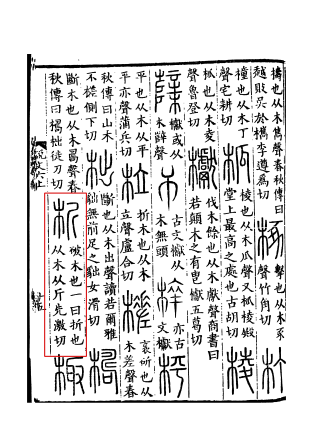 擣也从木雋聲春秋傳曰
越敗吳於檇李遵為切
椓
擊也从木豖
聲竹角切
朾
橦也从木丁
聲宅耕切
柧
棱也从木瓜聲又柧棱殿
堂上最高之處也古胡切
棱
柧也从木夌
聲魯登切
櫱
伐木餘也从木獻聲商書曰
若顛木之有㽕櫱五葛切
櫱或从
木辥聲
古文櫱从
木無頭
亦古
文櫱
枰
平也从木从平
平亦聲蒲兵切
柆
折木也从木
立聲盧合切
槎
衺斫也从
木差聲春
秋傳曰山木
不槎側下切
柮
斷也从木出聲讀若爾雅
貀無前足之貀女滑切
檮
斷木也从木𠷎聲春
秋傳曰檮柮徒刀切
析
破木也一曰折也
从木从斤先激切
棷